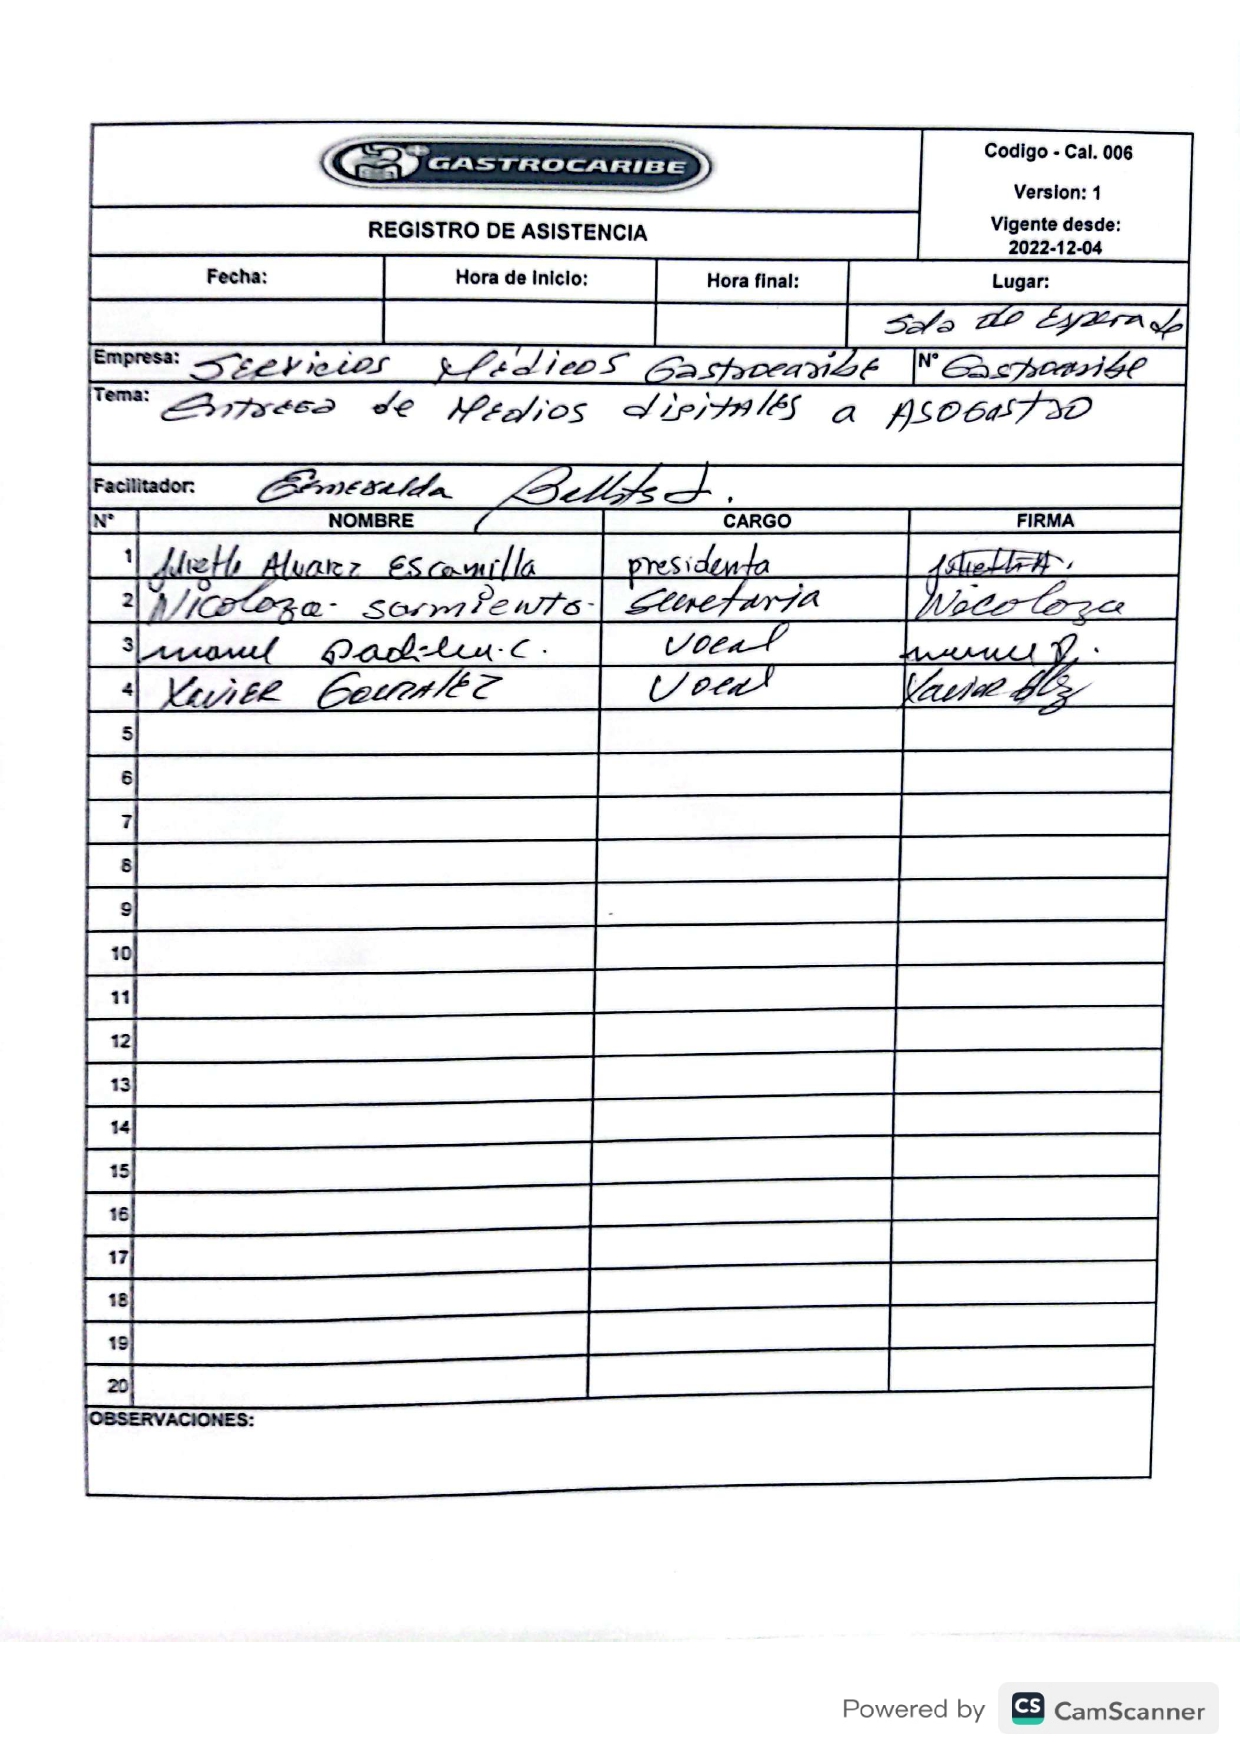 GASTROCARIBE
Codigo - Cal. 006
Version: 1
Vigente desde:
2022-12-04
REGISTRO DE ASISTENCIA
Fecha: Hora de Inicio: Hora final: Lugar:
Sala de Espera de
Empresa: Servicios Médicos Gastrocaribe N° Gastrocaribe
Tema: Entrega de Medios digitales a ASOGastro
Facilitador: Esmeralda
N° NOMBRE CARGO FIRMA
1 Julieth Alvarez Escamilla presidenta Julieth A.
2 Nicoloza sarmiento secretaria Nicoloza
3 manuel Padilla C. Vocal manuel P.
4 XAVIER GONZALEZ Vocal Xavier
5
6
7
8
9
10
11
12
13
14
15
16
17
18
19
20
OBSERVACIONES:
Powered by CS CamScanner